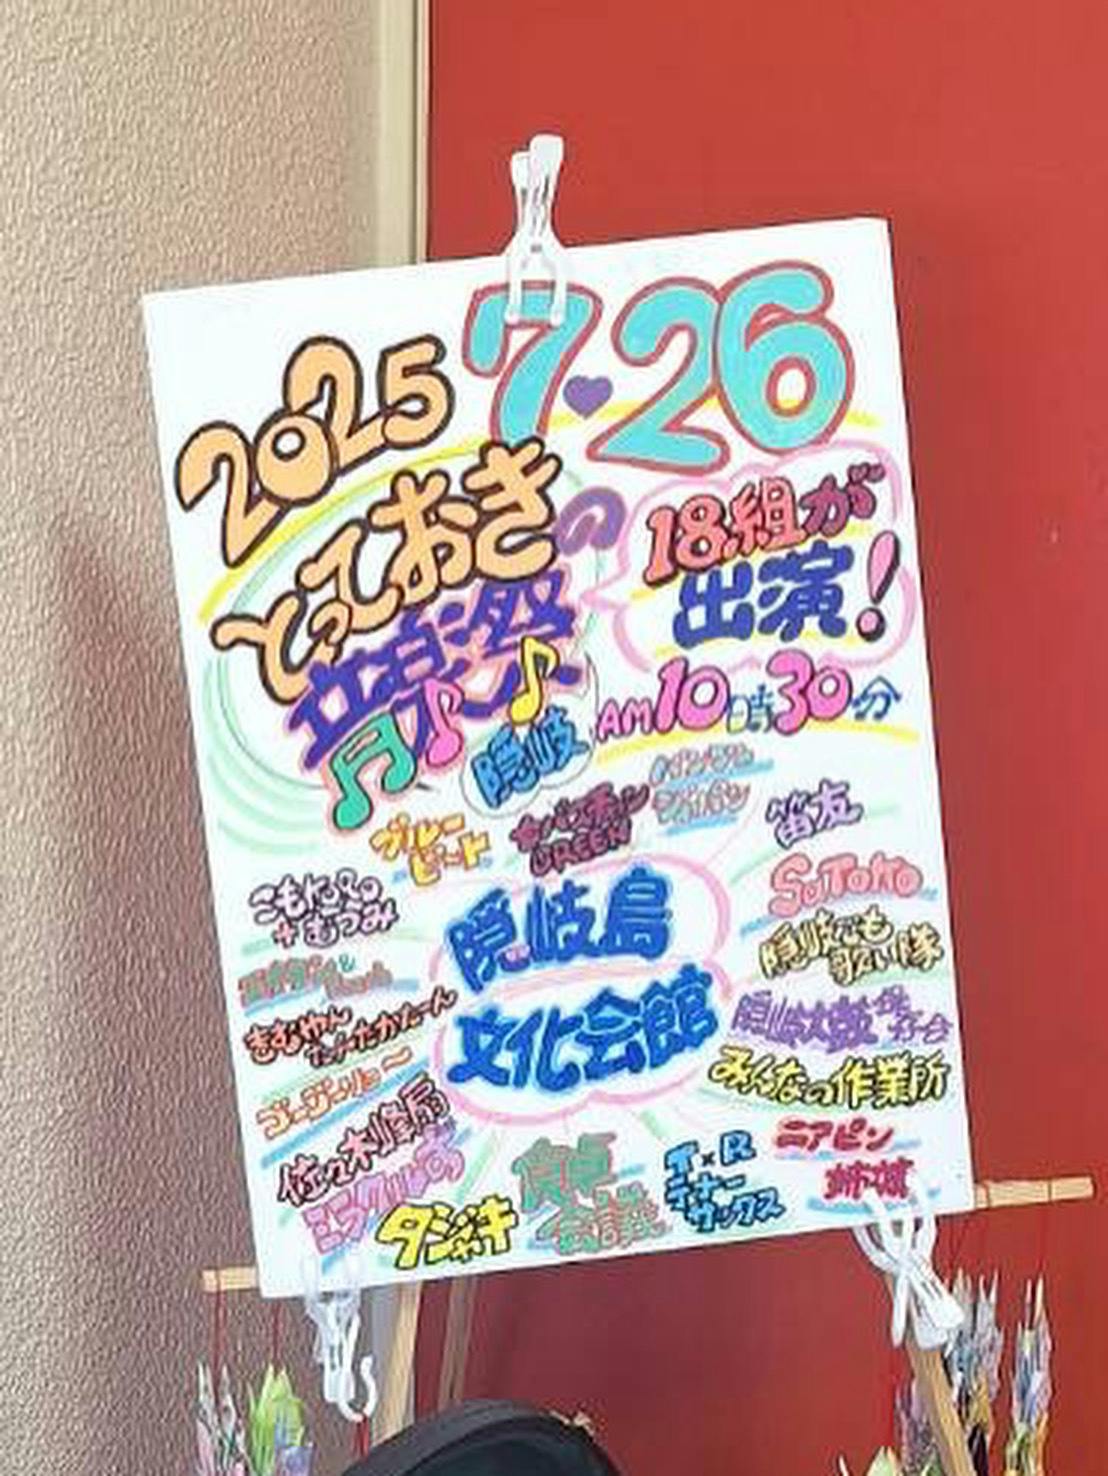 2025
7♥26
とっておきの
音楽祭
18組が
出演!
隠岐
AM10時30分
ブルー
ビート
GREEN
笛友
SaToKo
こもれびRo
+むつみ
隠岐島
文化会館
隠岐でも
歌い隊
きむやん
たかたーん
隠岐太鼓
みんなの作業所
ゴージーリュー
佐々木峰扇
ミラクルの
タジャキ
食卓
会議
T×R
テナー
サックス
ニアピン
姉妹